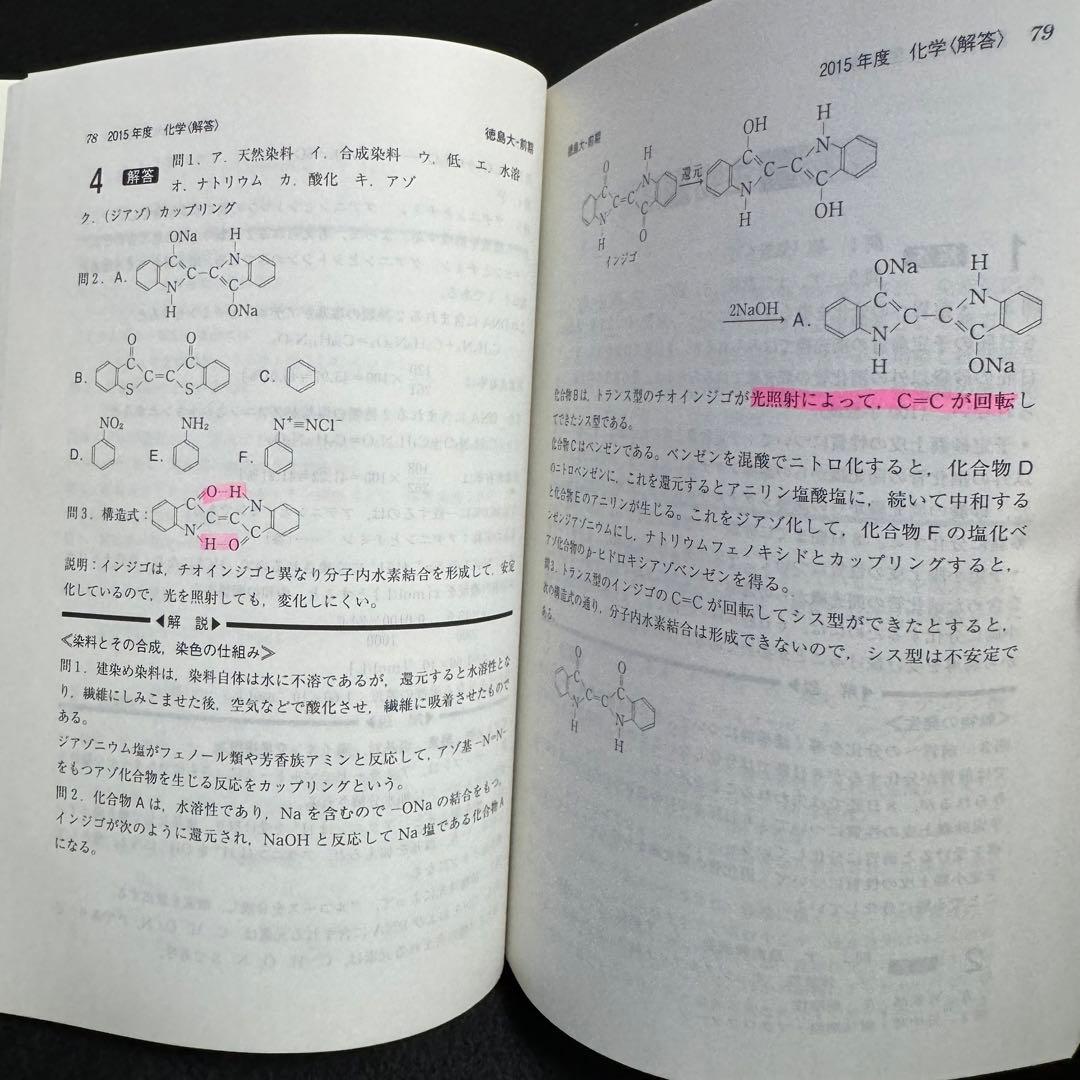 78 2015年度 化学〈解答〉
徳島大-前期
4 解答 問1．ア．天然染料 イ．合成染料 ウ．低 エ．水溶
オ．ナトリウム カ．酸化 キ．アゾ
ク．(ジアゾ)カップリング
ONa H
N
問2．A． C－C
N
H ONa
O O
B． C＝C C．
S S
NO₂ NH₂ N⁺≡NCl⁻
D． E． F．
O H N
問3．構造式： C＝C
N H－O
説明：インジゴは，チオインジゴと異なり分子内水素結合を形成して，安定
化しているので，光を照射しても，変化しにくい。
◀解 説▶
≪染料とその合成，染色の仕組み≫
問1．建染め染料は，染料自体は水に不溶であるが，還元すると水溶性とな
り，繊維にしみこませた後，空気などで酸化させ，繊維に吸着させたもので
ある。
ジアゾニウム塩がフェノール類や芳香族アミンと反応して，アゾ基－N＝N－
をもつアゾ化合物を生じる反応をカップリングという。
問2．化合物Aは，水溶性であり，Naを含むので－ONaの結合をもつ。
インジゴが次のように還元され，NaOHと反応してNa塩である化合物A
になる。
2015年度 化学〈解答〉 79
徳島大-前期
O H OH H
N 還元 N
C＝C C－C
N N
H O H OH
インジゴ
ONa H
N
2NaOH A． C－C
N
H ONa
化合物Bは，トランス型のチオインジゴが光照射によって，C＝Cが回転し
てできたシス型である。
化合物Cはベンゼンである。ベンゼンを混酸でニトロ化すると，化合物D
のニトロベンゼンに，これを還元するとアニリン塩酸塩に，続いて中和する
と化合物Eのアニリンが生じる。これをジアゾ化して，化合物Fの塩化ベ
ンゼンジアゾニウムにし，ナトリウムフェノキシドとカップリングすると，
アゾ化合物のp-ヒドロキシアゾベンゼンを得る。
問3．トランス型のインジゴのC＝Cが回転してシス型ができたとすると，
次の構造式の通り，分子内水素結合は形成できないので，シス型は不安定で
ある。
O O
C＝C
N N
H H